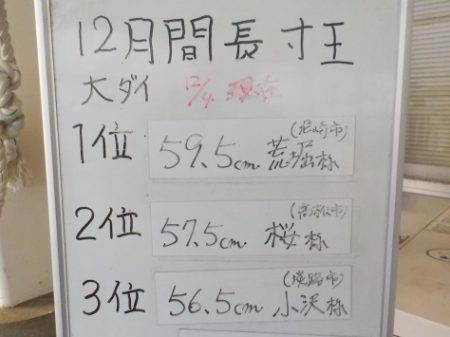 12月間長寸王
大ダイ 12/4 現在
1位 59.5cm (尼崎市) 荒堀様
2位 57.5cm 桜様
3位 56.5cm (淡路市) 小沢様